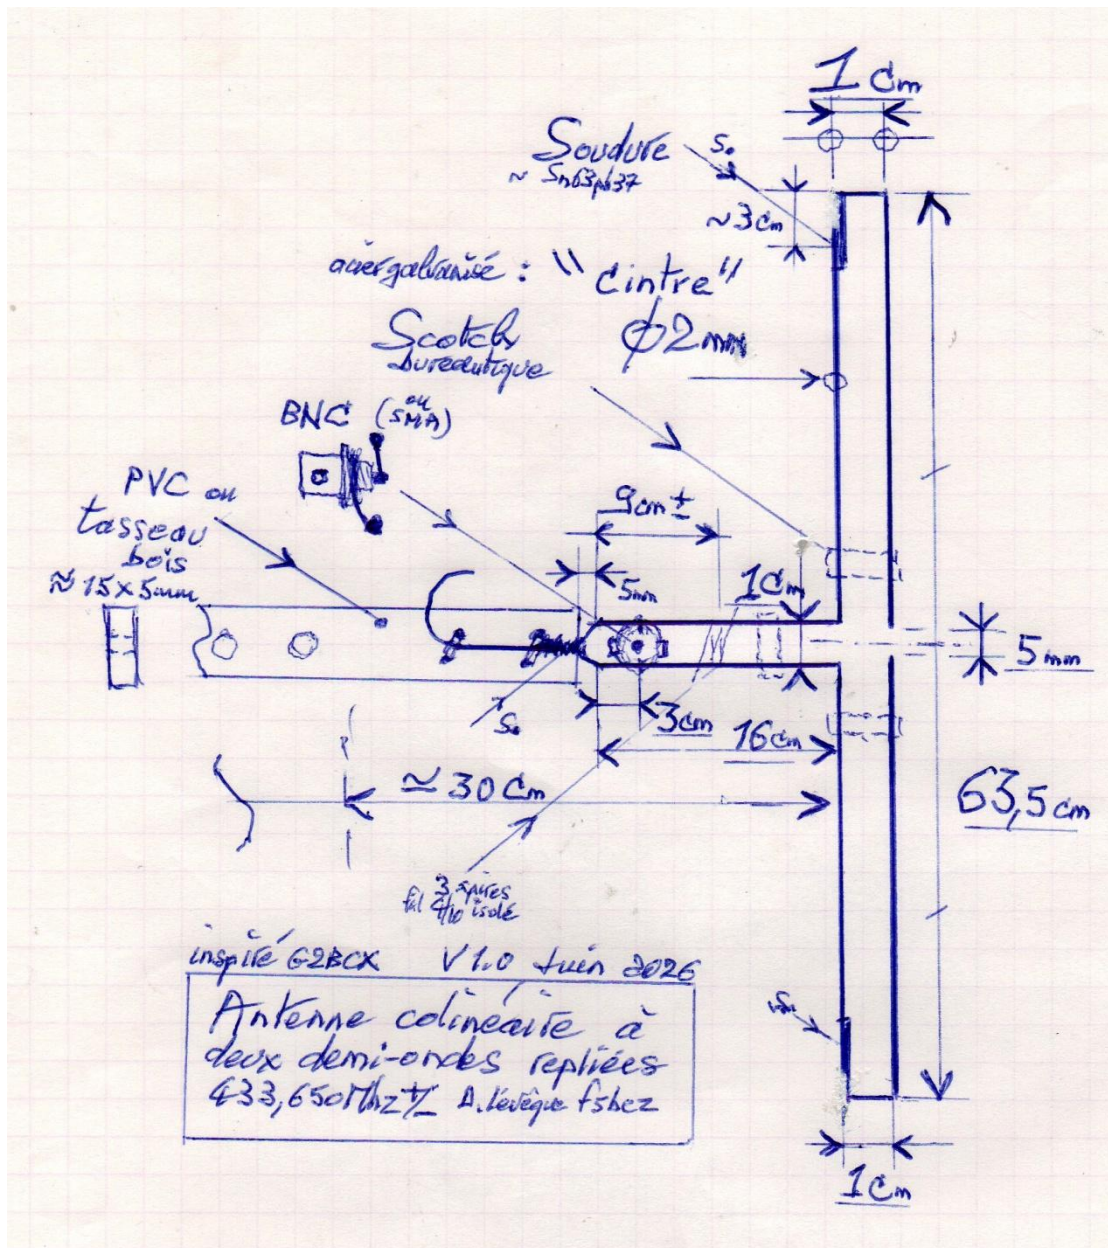 1 cm
Soudure
~ Sn63pb37
S.
~3cm
acier galvanisé : "Cintre"
ϕ2mm
Scotch
bureautique
BNC (ou SMA)
PVC ou
tasseau
bois
≈ 15x5mm
9cm ±
5mm
1cm
5mm
3cm
S.
16cm
≃ 30 cm
63,5 cm
3 spires
fil 4/10 isolé
inspiré G2BCX V1.0 Juin 2026
Antenne colinéaire à
deux demi-ondes repliées
433,650Mhz +/- A. levêque f5bcz
S.
1cm